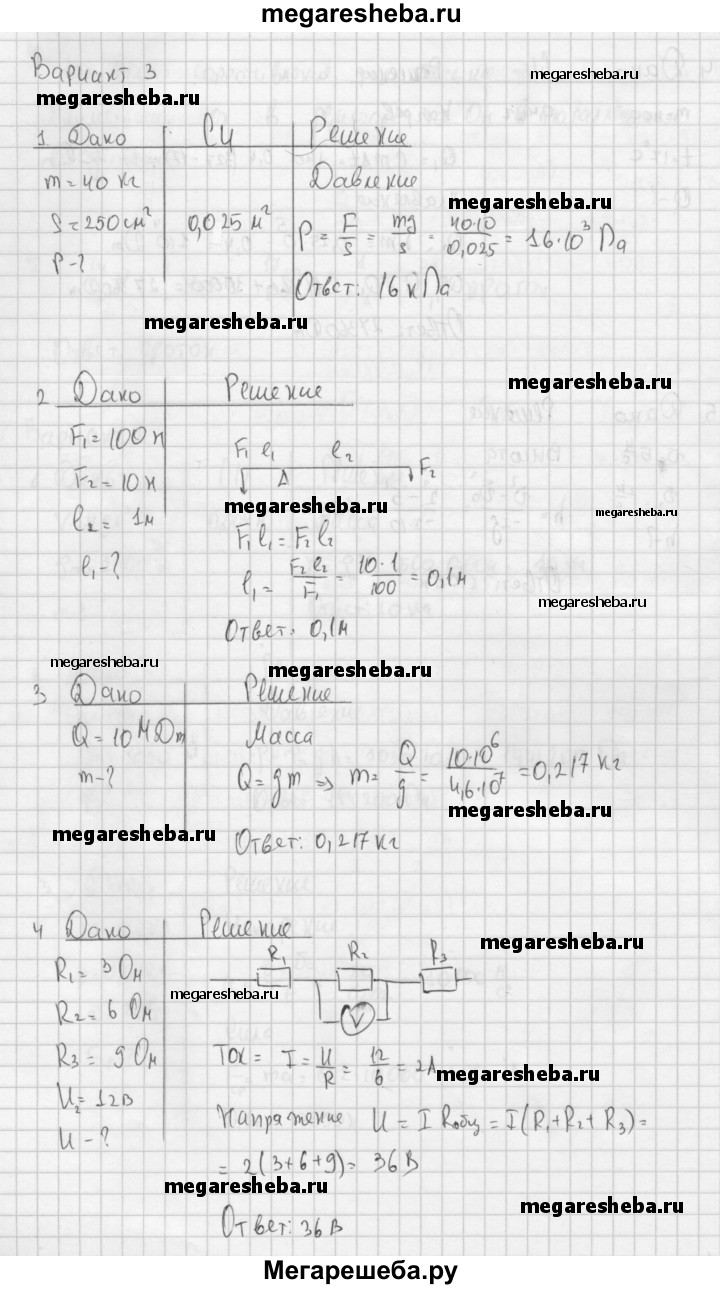 megaresheba.ru
Вариант 3
megaresheba.ru
megaresheba.ru
1 Дано СИ Решение
m = 40 кг Давление
megaresheba.ru
S = 250 см² 0,025 м² P = F/s = mg/s = 40·10/0,025 = 16·10³ Па
P - ?
Ответ: 16 кПа
megaresheba.ru
2 Дано Решение
megaresheba.ru
F₁ = 100 н
F₁ l₁ l₂ F₂
F₂ = 10 н
megaresheba.ru
megaresheba.ru
l₂ = 1м
F₁ l₁ = F₂ l₂
l₁ - ?
l₁ = F₂ l₂/F₁ = 10·1/100 = 0,1м
megaresheba.ru
Ответ: 0,1м
megaresheba.ru
megaresheba.ru
3 Дано Решение
Q = 10 МДж Масса
m - ? Q = qm ⇒ m = Q/q = 10·10⁶/4,6·10⁷ = 0,217 кг
megaresheba.ru
megaresheba.ru
Ответ: 0,217 кг
4 Дано Решение
megaresheba.ru
R₁ R₂ R₃
R₁ = 3 Ом
megaresheba.ru
R₂ = 6 Ом
V
R₃ = 9 Ом Ток = I = U/R = 12/6 = 2А
megaresheba.ru
U₂ = 12В
U - ? Напряжение U = I Rобщ = I(R₁ + R₂ + R₃) =
= 2(3+6+9) = 36 В
megaresheba.ru
megaresheba.ru
Ответ: 36 В
Мегарешеба.ру